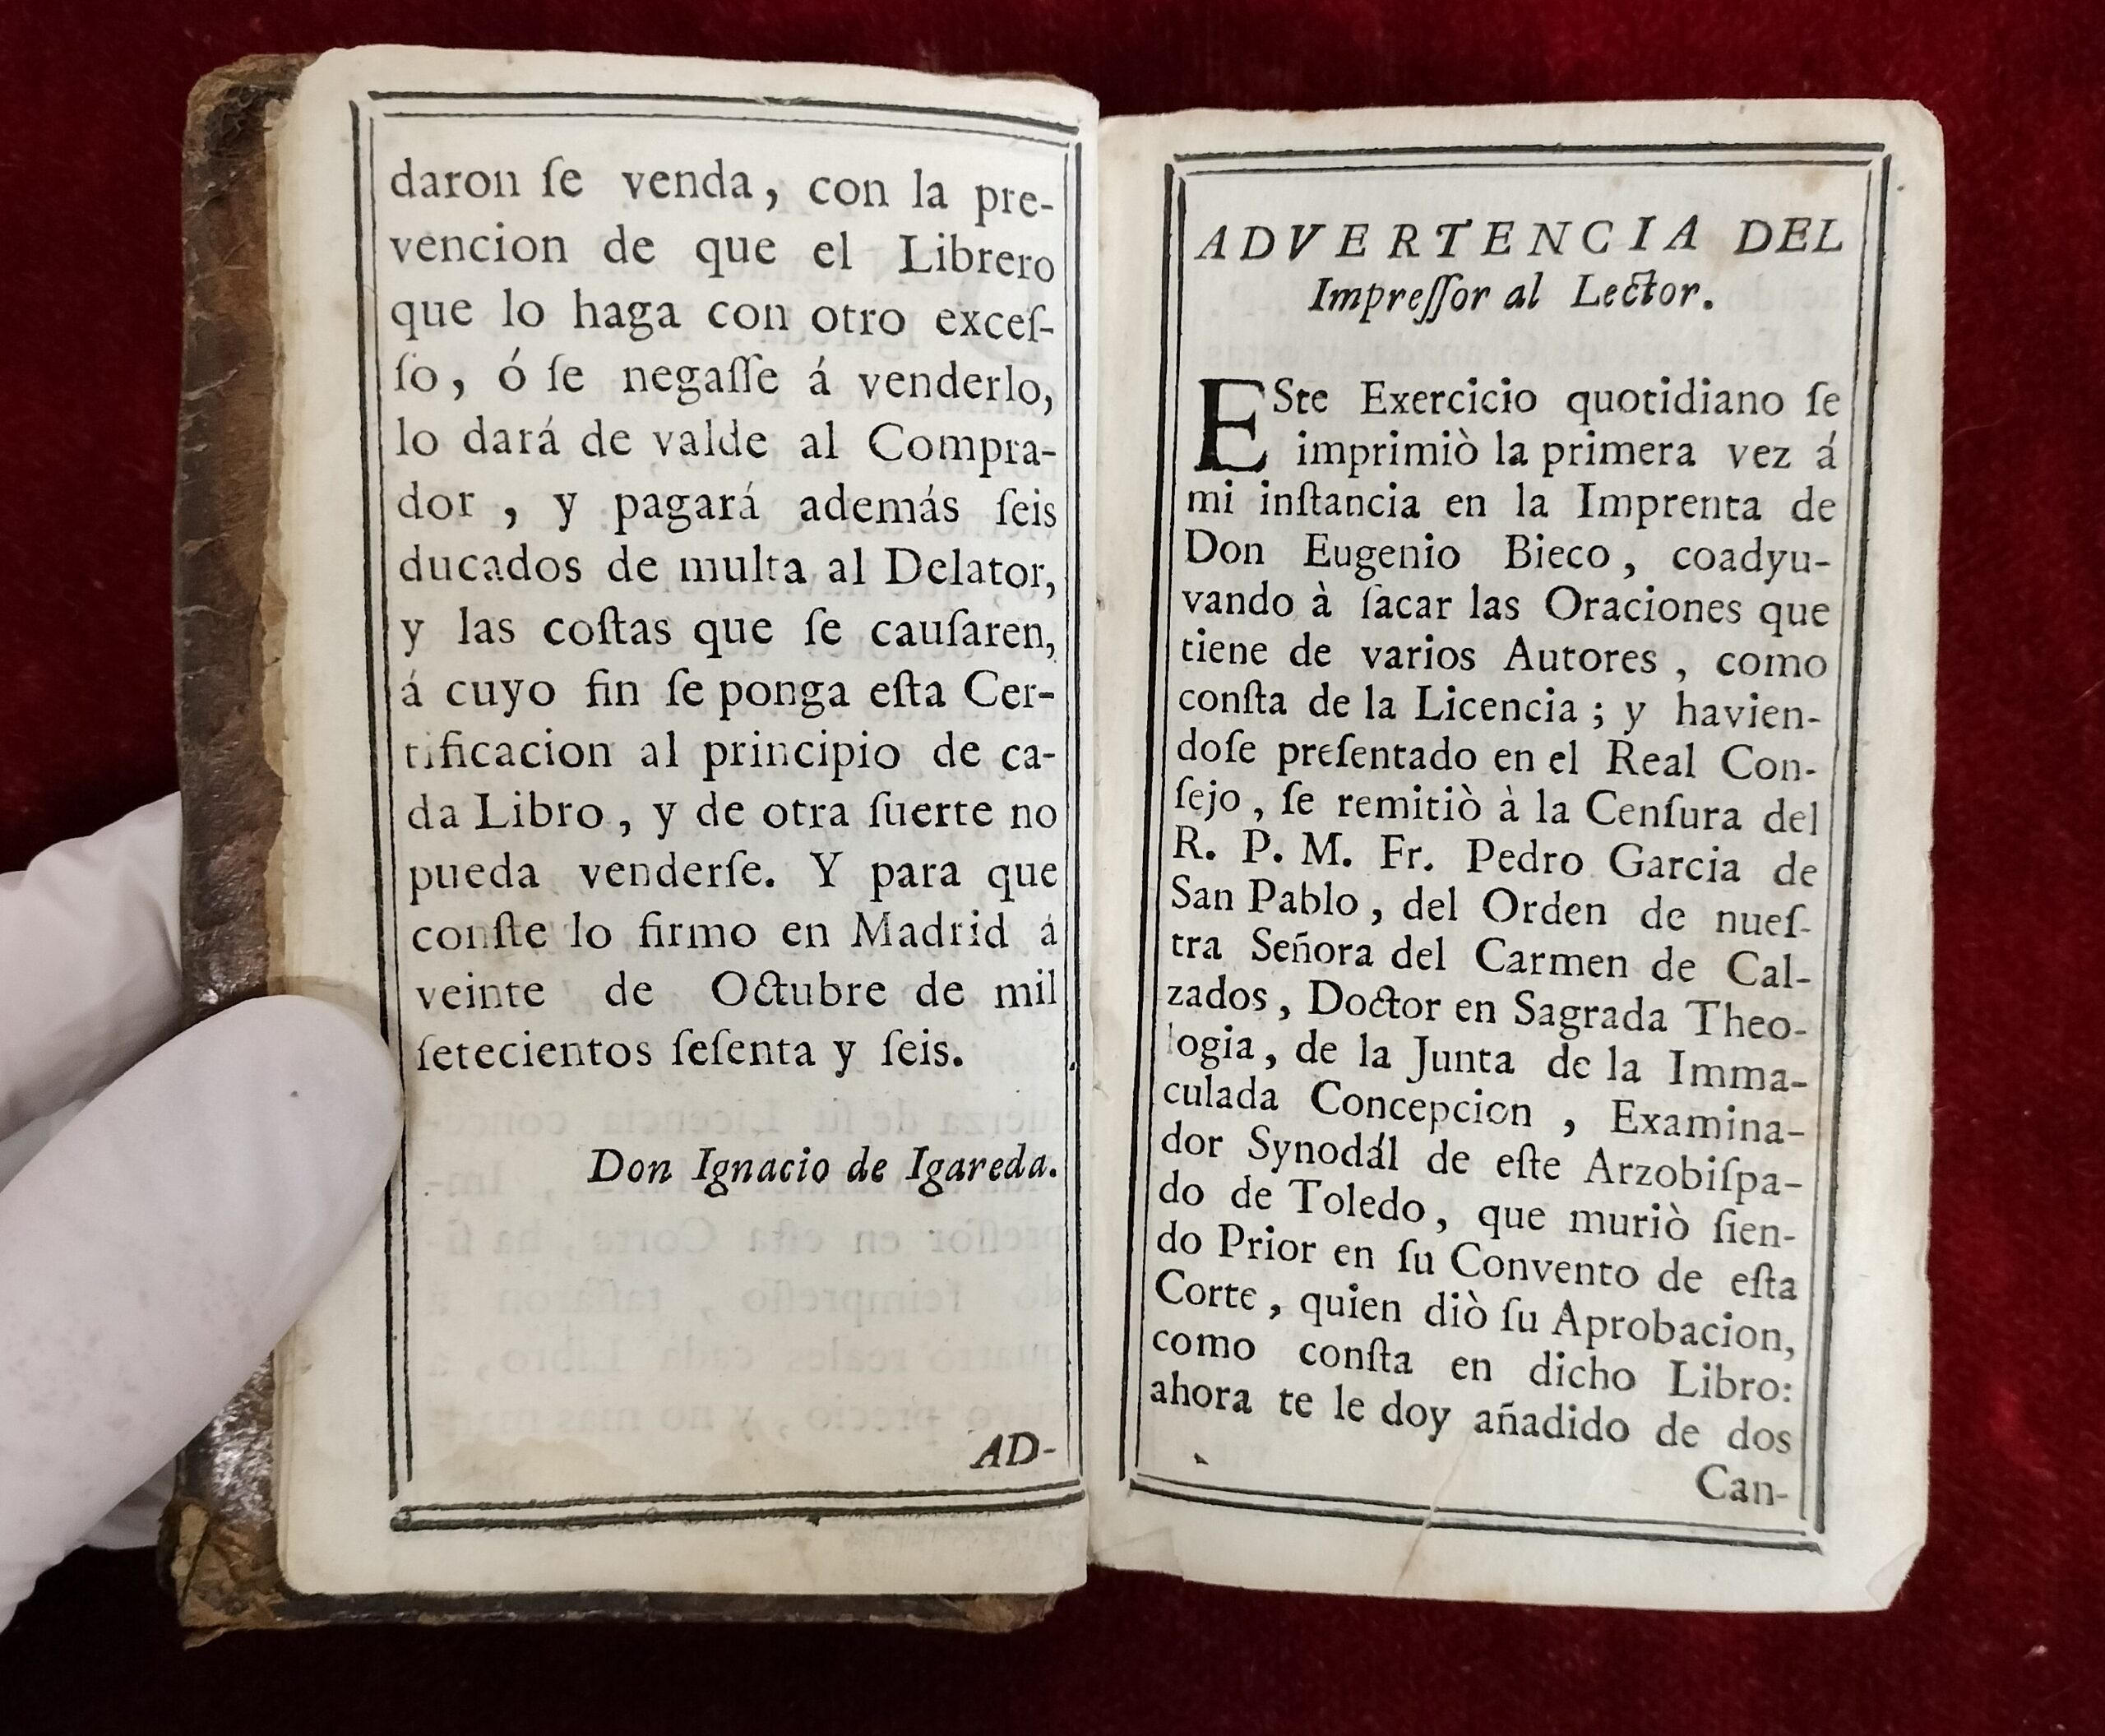 daron ſe venda, con la pre-
vencion de que el Librero
que lo haga con otro exceſ-
ſo, ó ſe negaſſe á venderlo,
lo dará de valde al Compra-
dor , y pagará además ſeis
ducados de multa al Delator,
y las coſtas que ſe cauſaren,
á cuyo fin ſe ponga eſta Cer-
tificacion al principio de ca-
da Libro, y de otra ſuerte no
pueda venderſe. Y para que
conſte lo firmo en Madrid á
veinte de Octubre de mil
ſetecientos ſeſenta y ſeis.
Don Ignacio de Igareda.
AD-
ADVERTENCIA DEL
Impreſſor al Lector.
ESte Exercicio quotidiano ſe
imprimiò la primera vez á
mi inſtancia en la Imprenta de
Don Eugenio Bieco, coadyu-
vando à ſacar las Oraciones que
tiene de varios Autores , como
conſta de la Licencia ; y havien-
doſe preſentado en el Real Con-
ſejo, ſe remitiò à la Cenſura del
R. P. M. Fr. Pedro Garcia de
San Pablo, del Orden de nueſ-
tra Señora del Carmen de Cal-
zados, Doctor en Sagrada Theo-
logia, de la Junta de la Imma-
culada Concepcion , Examina-
dor Synodál de eſte Arzobiſpa-
do de Toledo, que muriò ſien-
do Prior en ſu Convento de eſta
Corte, quien diò ſu Aprobacion,
como conſta en dicho Libro:
ahora te le doy añadido de dos
Can-